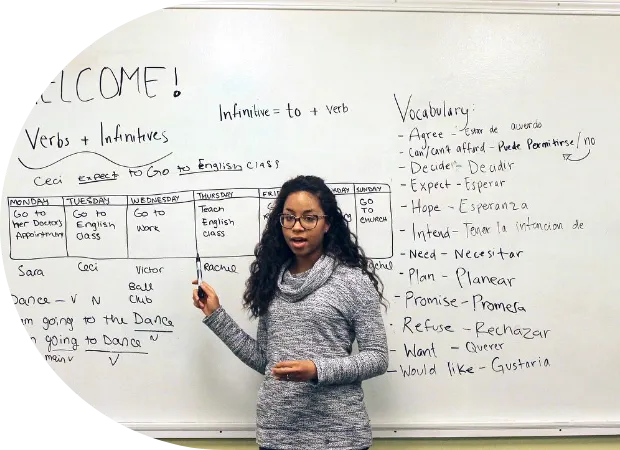 ELCOME!
Verbs + Infinitives
Infinitive = to + verb
Ceci expect to Go to English class
MONDAY TUESDAY WEDNESDAY THURSDAY FRI DAY SUNDAY
Go to her Doctors Appointment
Go to English class
Go to work
Teach English class
GO TO CHURCH
Sara Ceci Victor Rachel chel
Ball Club
Dance - V N
m going to the Dance N
going to Dance
main v V
Vocabulary:
- Agree - Estar de acuerdo
- Can/can't afford - Puede Permitirse/no
- Decide - Decidir
- Expect - Esperar
- Hope - Esperanza
- Intend - Tener la intencion de
- Need - Necesitar
- Plan - Planear
- Promise - Promesa
- Refuse - Rechazar
- Want - Querer
- Would like - Gustaria